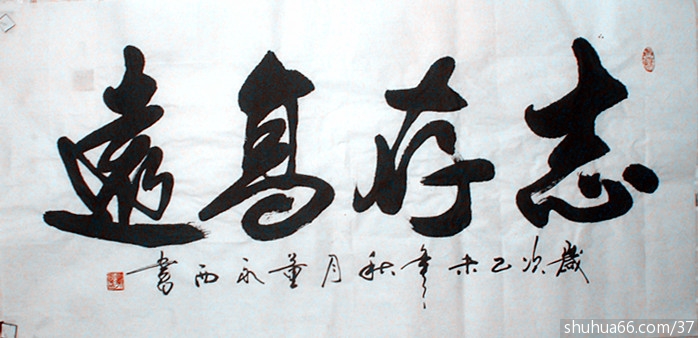 志存高遠
歲次乙未年秋月董永西書
shuhua66.com/37